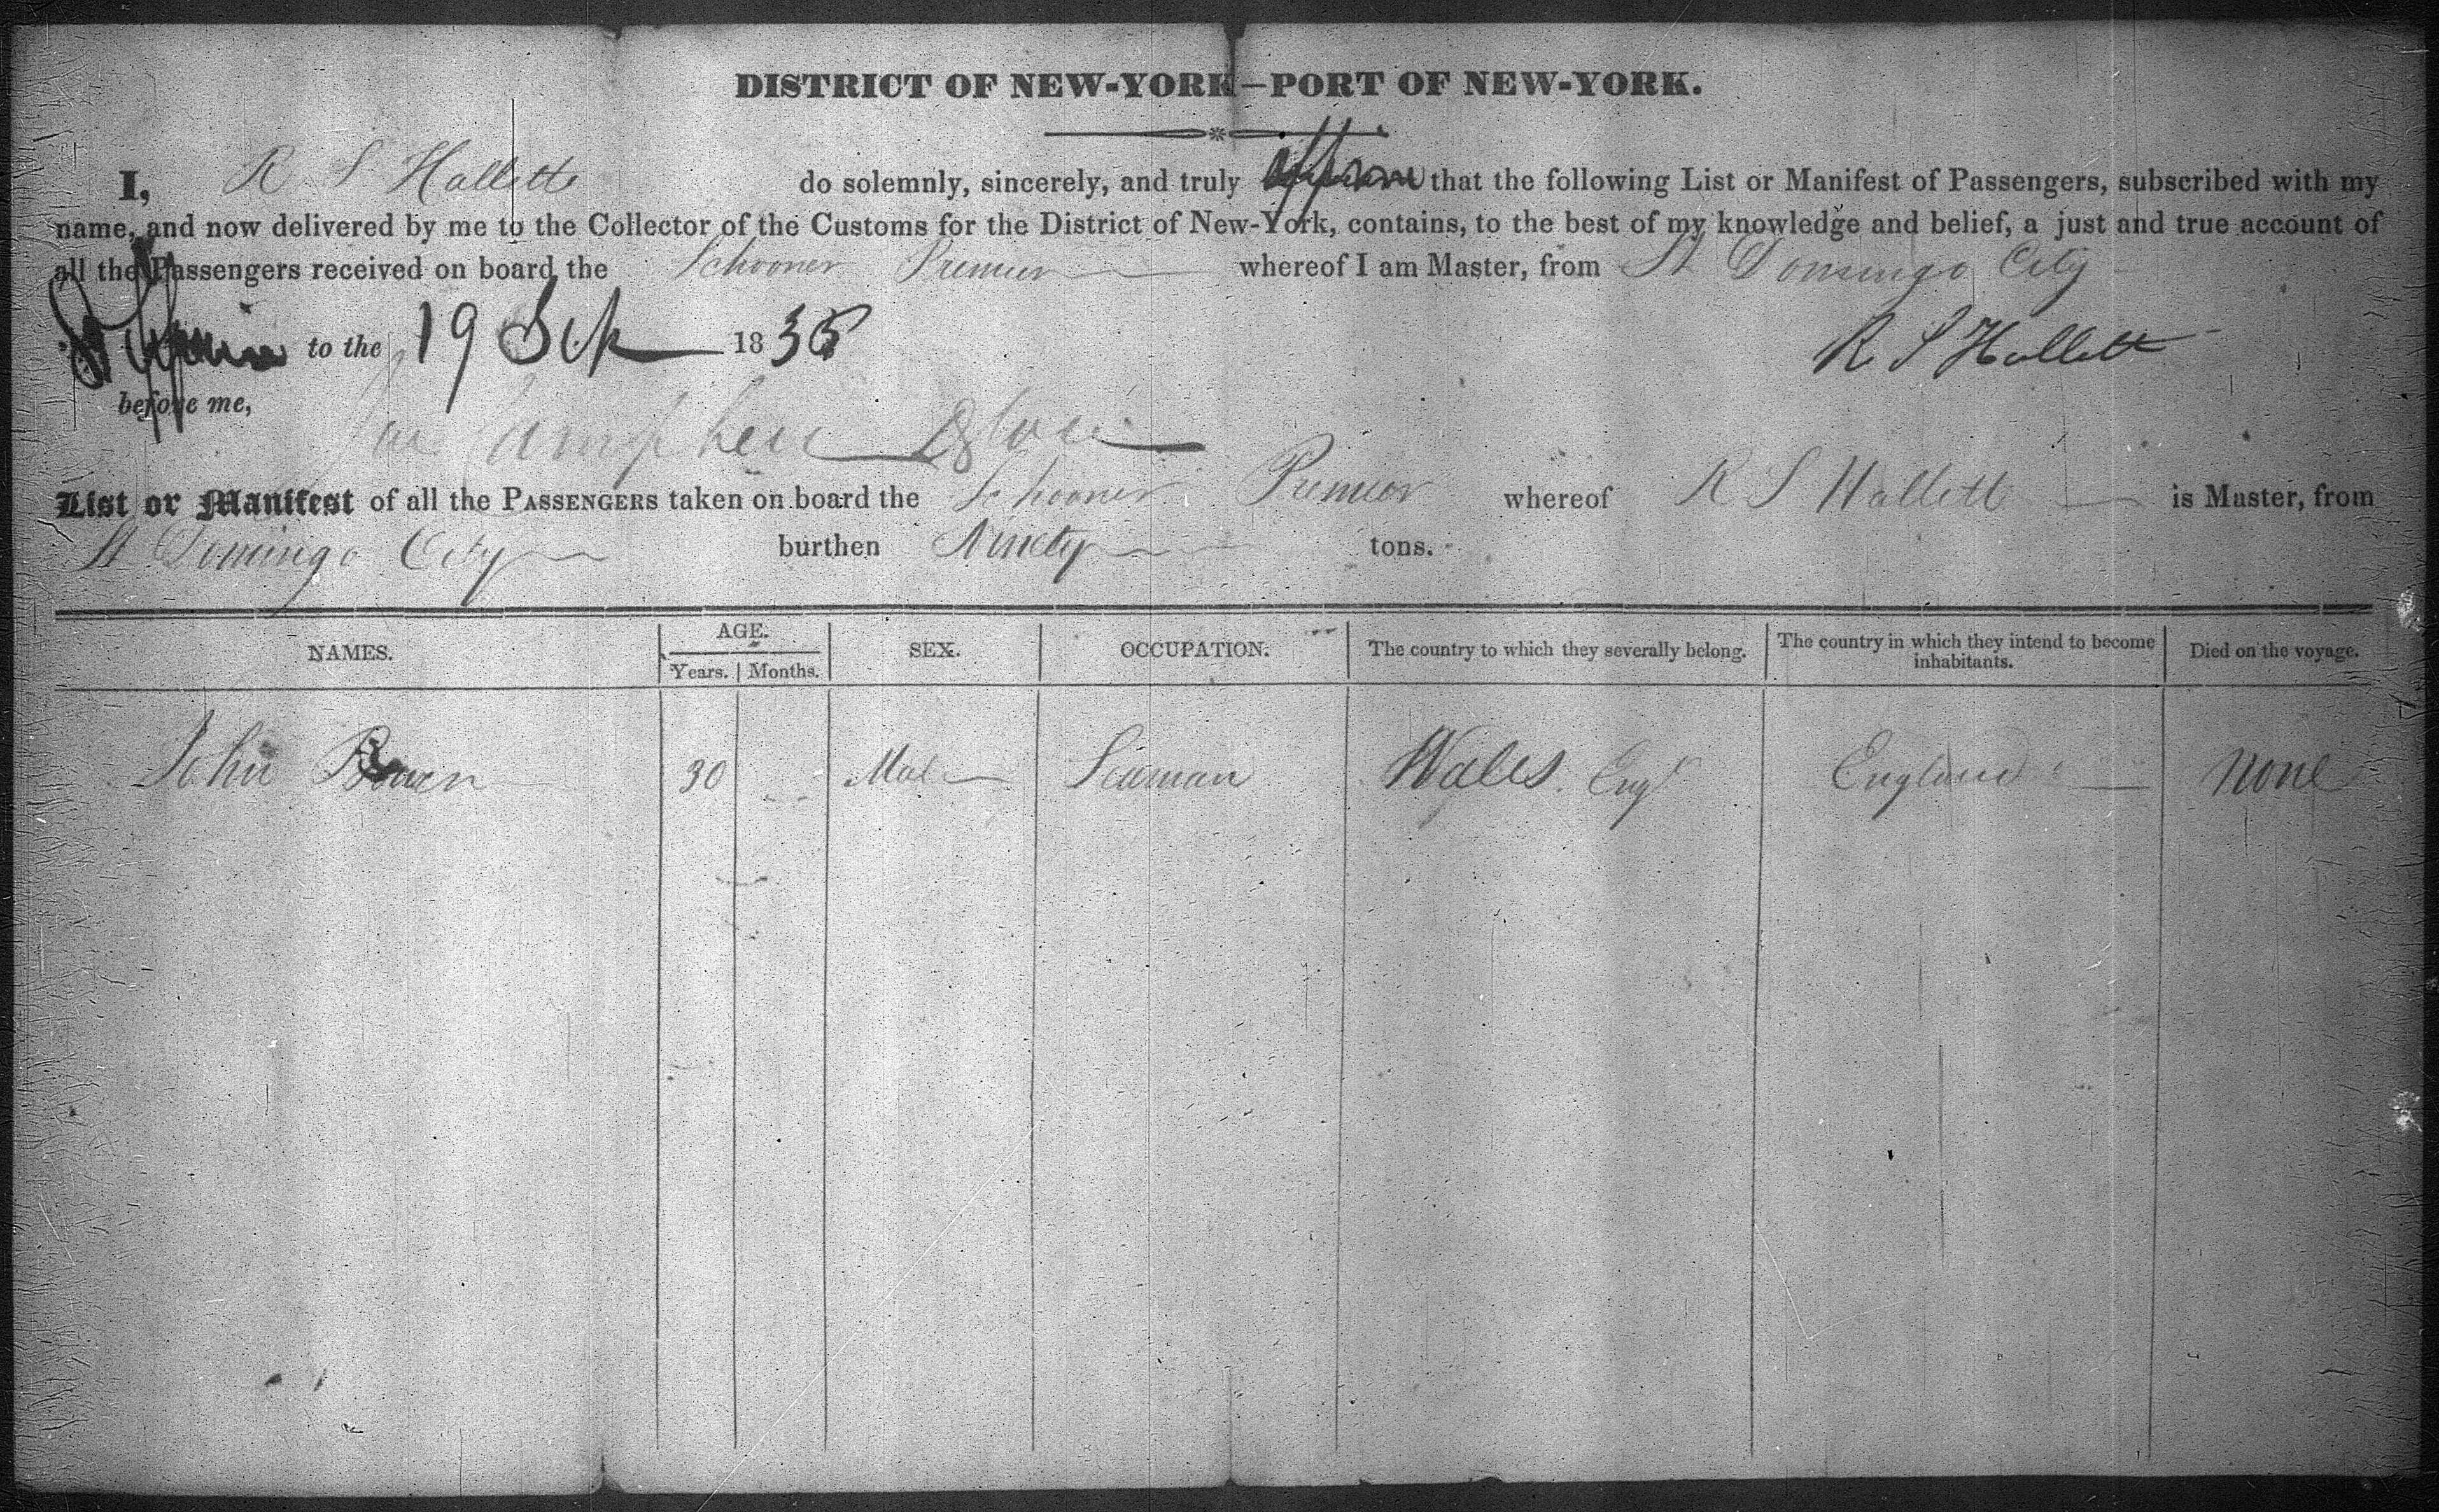 DISTRICT OF NEW-YORK—PORT OF NEW-YORK.
I, R S Hallett do solemnly, sincerely, and truly affirm that the following List or Manifest of Passengers, subscribed with my
name, and now delivered by me to the Collector of the Customs for the District of New-York, contains, to the best of my knowledge and belief, a just and true account of
all the Passengers received on board the Schooner Premier whereof I am Master, from St Domingo City
to the 19 1835 R S Hallett
before me,
List or Manifest of all the PASSENGERS taken on board the Schooner Premier whereof R S Hallett is Master, from
St Domingo City burthen Ninety tons.
NAMES. AGE. SEX. OCCUPATION. The country to which they severally belong. The country in which they intend to become inhabitants. Died on the voyage.
Years. Months.
John 30 Male Seaman Wales. Engd England None